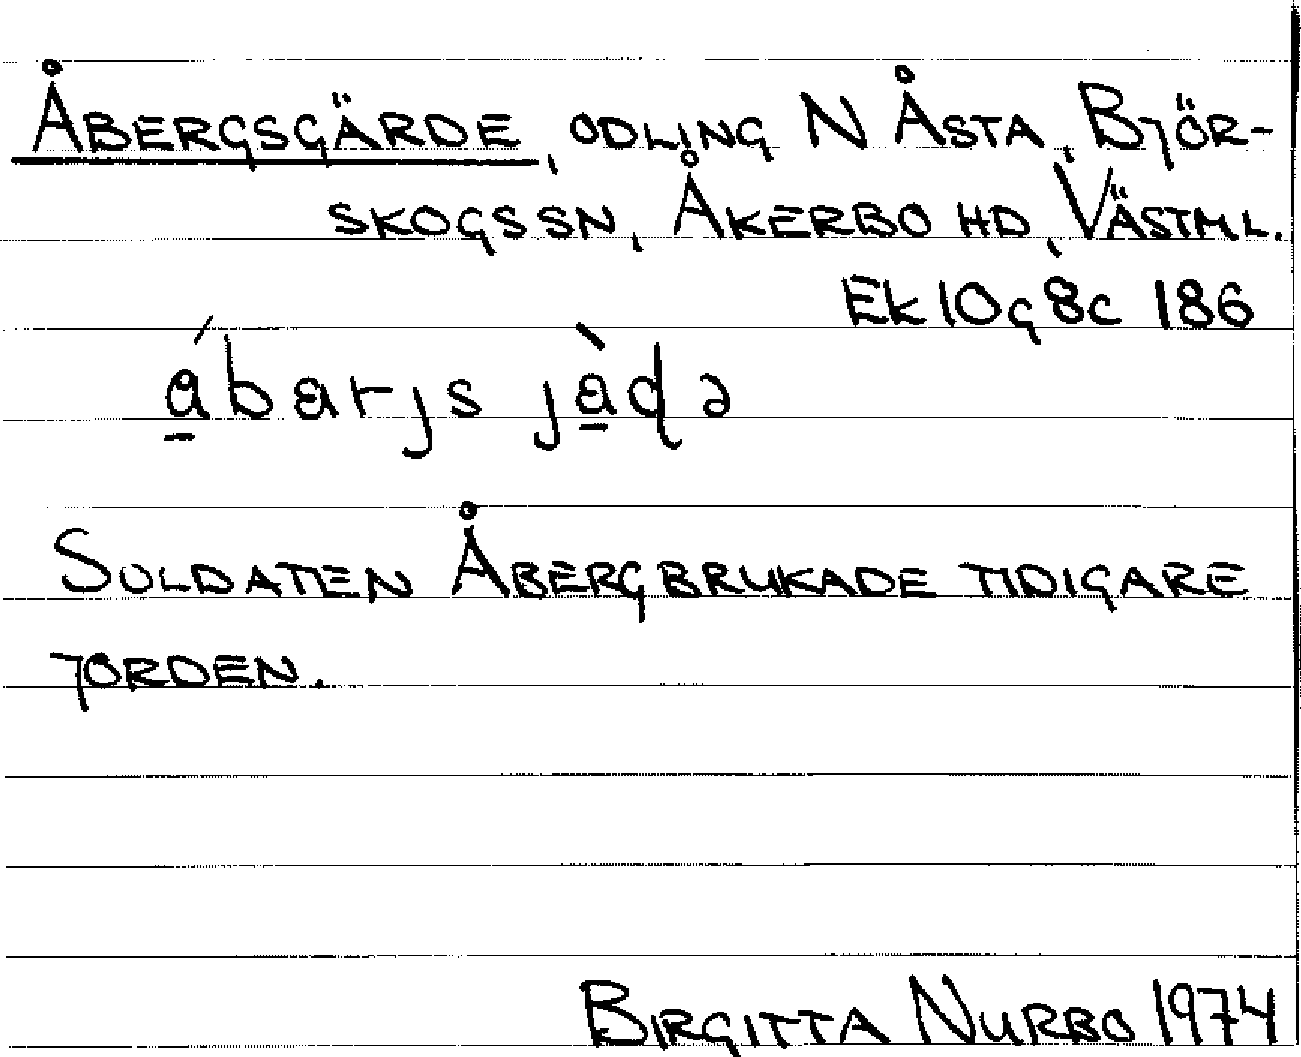 ÅBERGSGÄRDE, ODLING N ÅSTA, BJÖR-
SKOGSSN, ÅKERBO HD, VÄSTML.
EK 10g 8c 186
SOLDATEN ÅBERG BRUKADE TIDIGARE
JORDEN.
BIRGITTA NURBO 1974